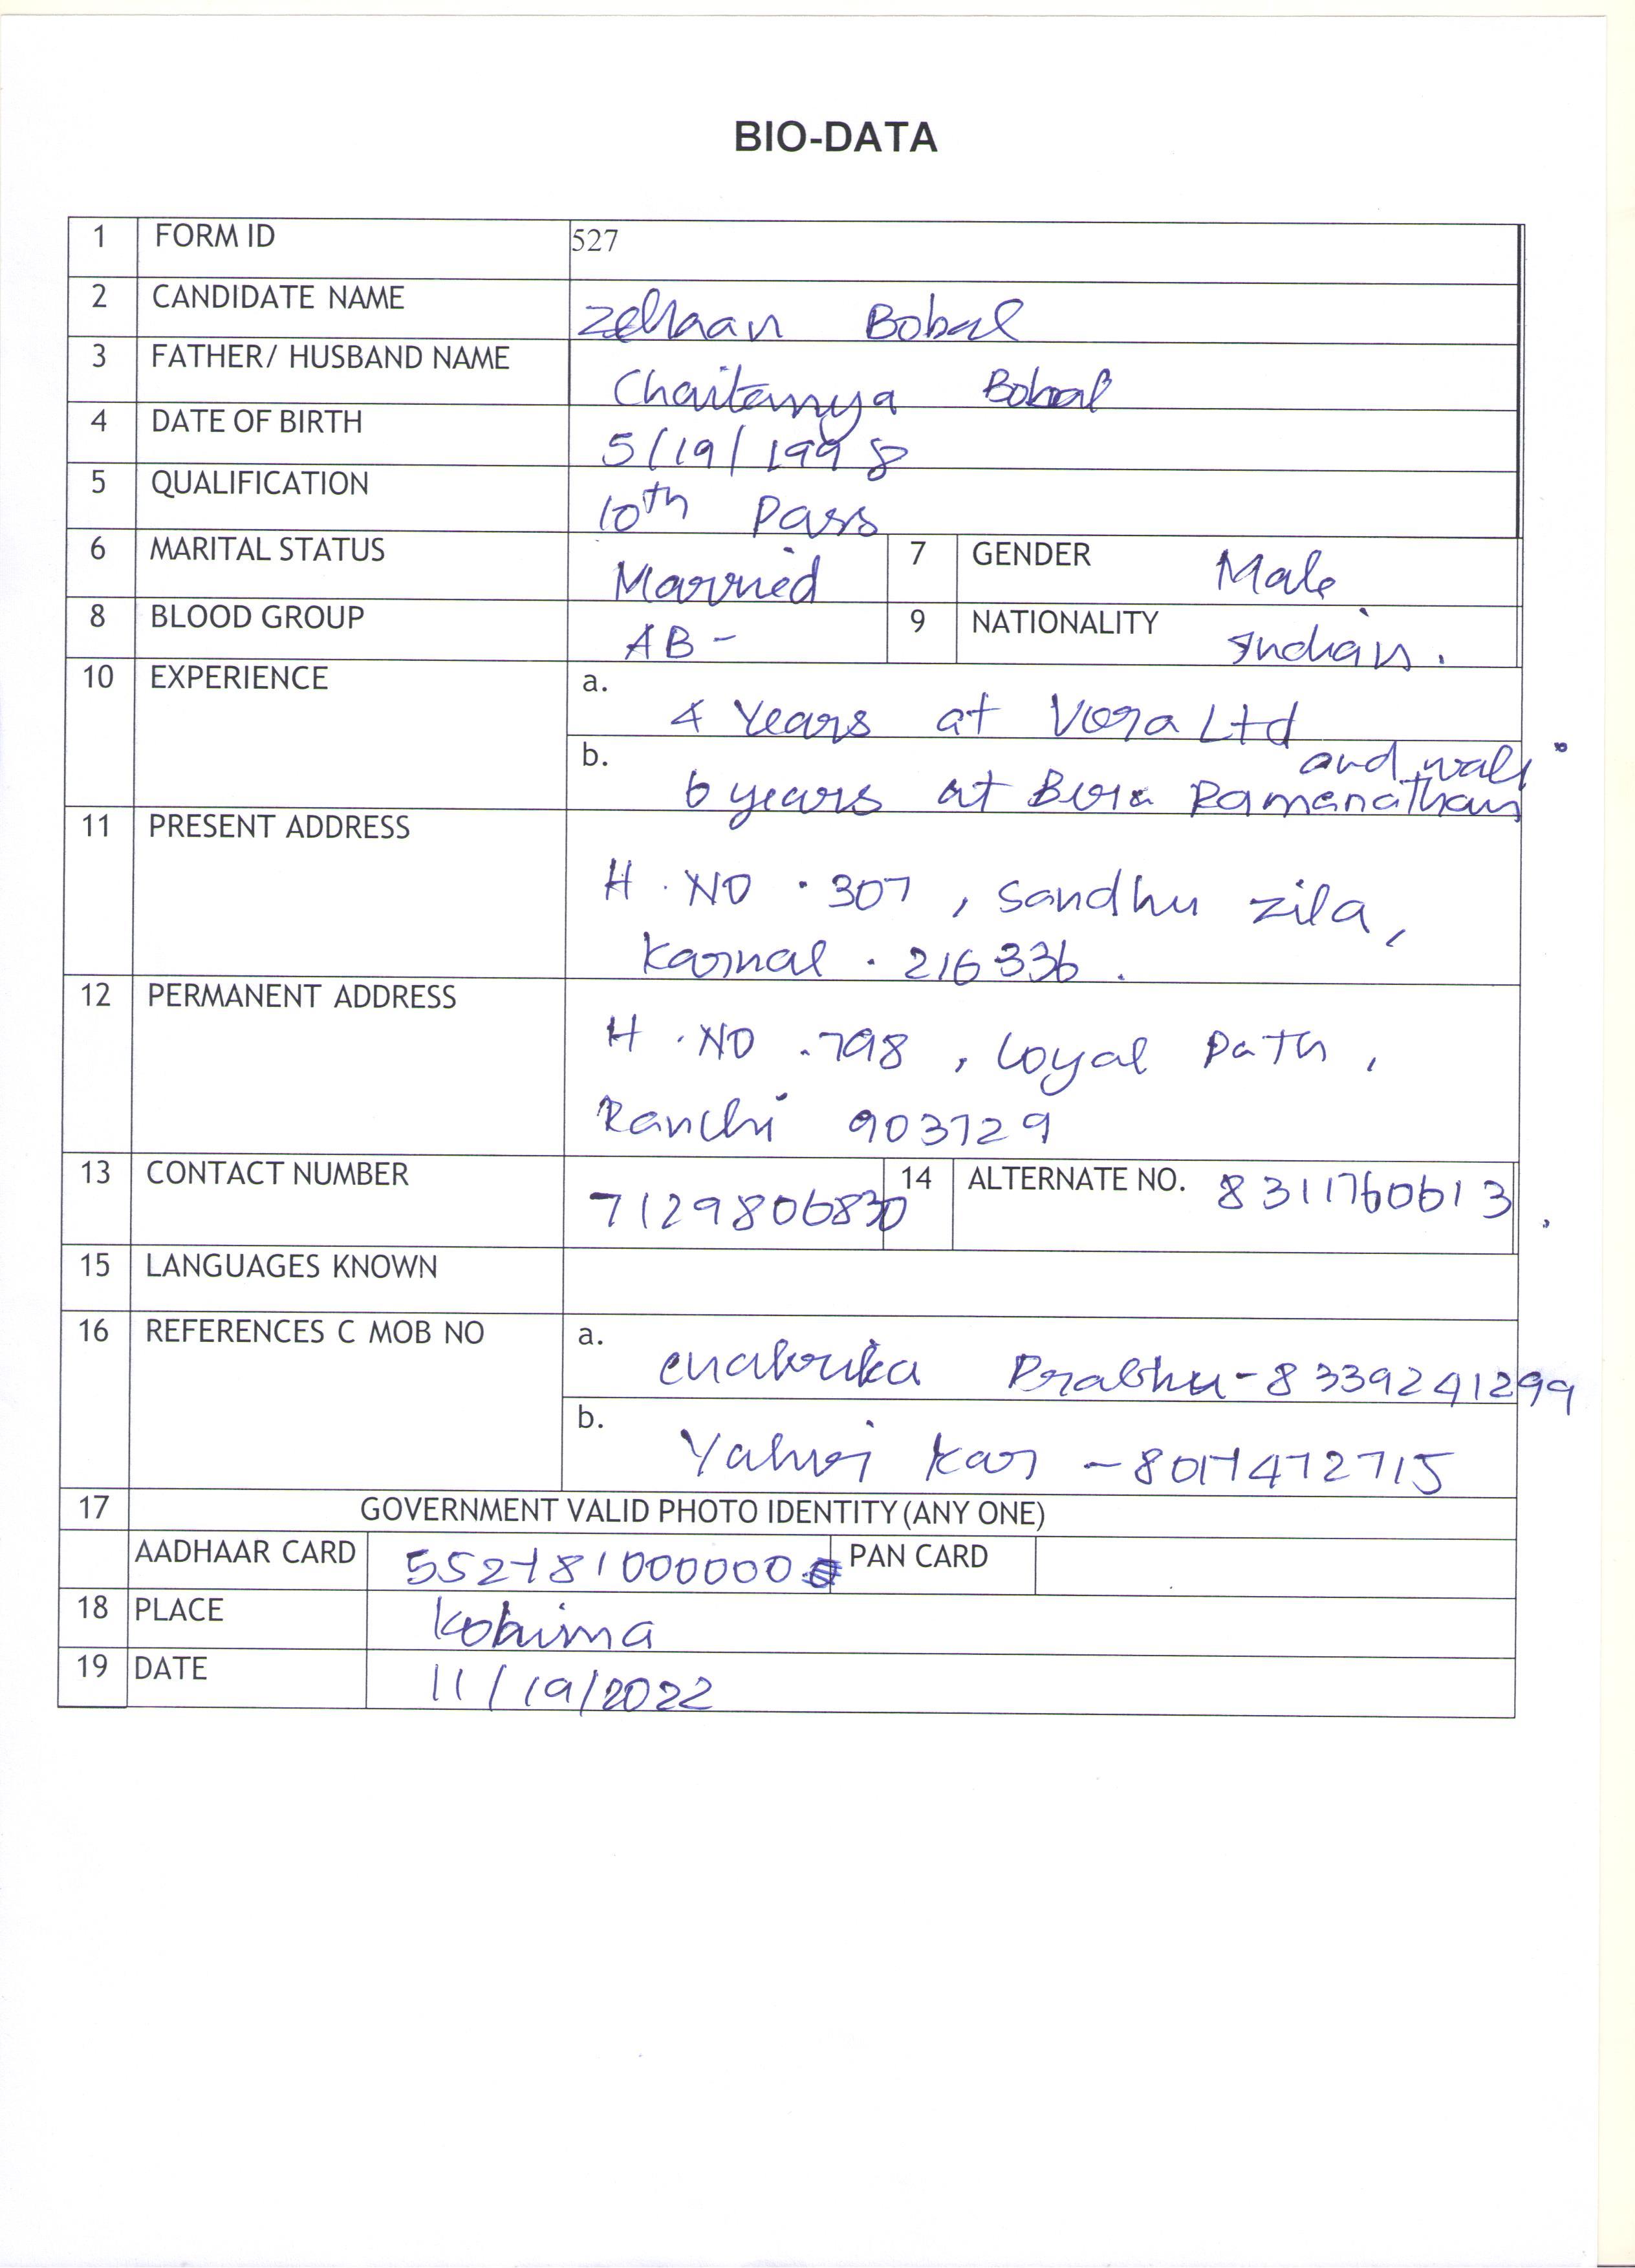 BIO-DATA
1 FORM ID 527
2 CANDIDATE NAME Zehaan Bobal
3 FATHER/ HUSBAND NAME Chaitanya Bobal
4 DATE OF BIRTH 5/19/1998
5 QUALIFICATION 10th Pass
6 MARITAL STATUS Married 7 GENDER Male
8 BLOOD GROUP AB- 9 NATIONALITY Indian.
10 EXPERIENCE a. 4 Years at Vora Ltd
b. 6 years at Bora Ramanathan and wali
11 PRESENT ADDRESS
H.NO.307, Sandhu zila,
Karnal. 216336.
12 PERMANENT ADDRESS
H.NO.798, Loyal Path,
Ranchi 903729
13 CONTACT NUMBER 7129806830 14 ALTERNATE NO. 8311760613
15 LANGUAGES KNOWN
16 REFERENCES C MOB NO a. Prabhu-8339241299
b. Yahvi Kar -8017472715
17 GOVERNMENT VALID PHOTO IDENTITY(ANY ONE)
AADHAAR CARD 552781000000 PAN CARD
18 PLACE Kohima
19 DATE 11/19/2022